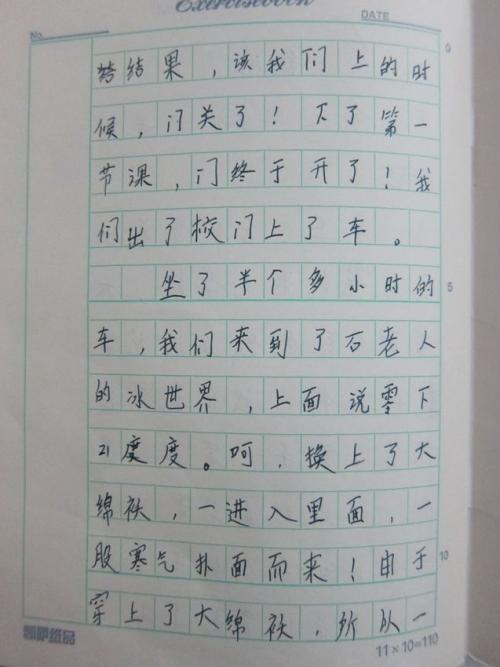 Exercisebook
No.
DATE
结果，该我们上的时
候，门关了！下了第一
节课，门终于开了！我
们出了校门上了车。
坐了半个多小时的
5
车，我们来到了石老人
的冰世界，上面说零下
21度度。呵，换上了大
绵袄，一进入里面，一
股寒气扑面而来！由于
10
穿上了大绵袄，所从一
凯萨纸品
11×10=110